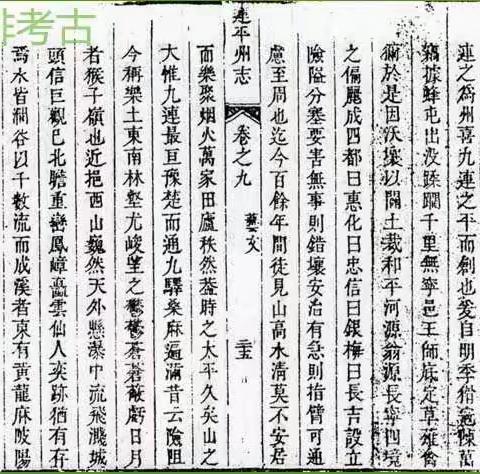 連之為州喜九連之平而創也爰自明季猾寇陳萬
竊據蜂屯出沒蹂躪千里無寧邑王師底定草雉禽
獮於是因沃壤以闢土裁和平河源翁源長寧四境
之偏麗成四都曰惠化曰忠信曰銀梅曰長吉設立
險隘分塞要害無事則錯壤安治有急則指臂可通
慮至周也迄今百餘年間徒見山高水清莫不安居
連平州志
卷之九
藝文
而樂聚烟火萬家田廬秩然葢時之太平久矣山之
大惟九連最巨豫楚而通九驛桑麻遍滿昔云險阻
今稱樂土東南林壑尤峻望之鬱鬱蒼蒼蔽虧日月
者猴子嶺也近挹西山巍然天外懸瀑中流飛濺城
頭信巨觀已北瞻重巒鳳嶂矗雲仙人奕跡猶有存
焉水皆澗谷以千數流而成溪者東有黃龍麻陂陽
考古